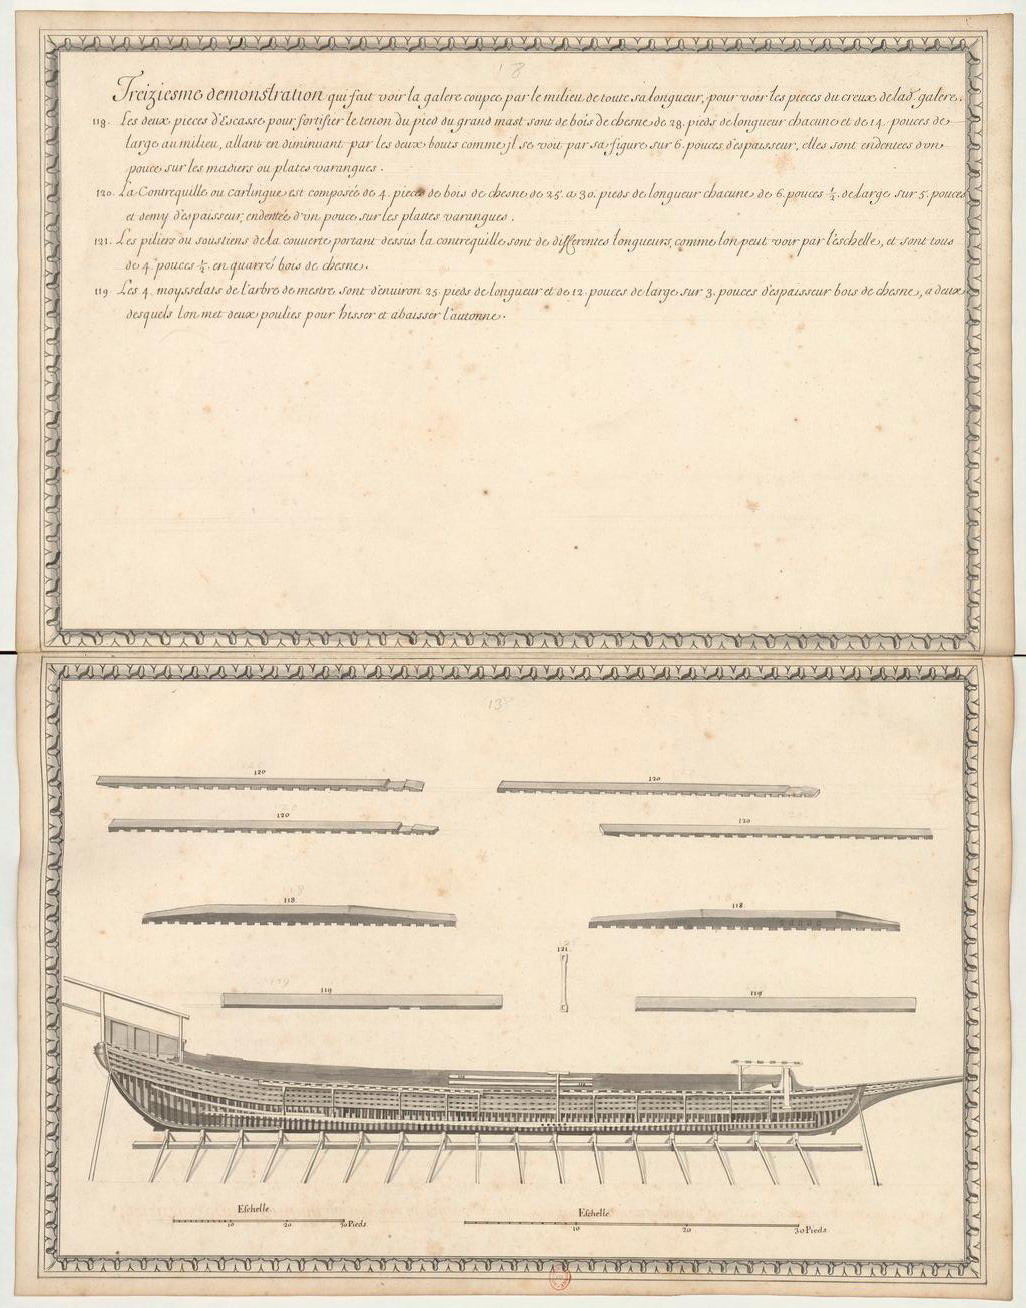 18
Treiziesme demonstration qui fait voir la galere coupee par le milieu de toute sa longueur, pour voir les pieces du creux de lad.^e galere.
118. Les deux pieces d'Escasse pour fortifier le tenon du pied du grand mast sont de bois de chesne de 28. pieds de longueur chacune et de 14. pouces de
large au milieu, allant en diminuant par les deux bouts comme jl se voit par sa figure sur 6. pouces d'espaisseur, elles sont endentees d'vn
pouce sur les madiers ou plates varangues.
120. La Contrequille ou carlingue est composée de 4. pieces de bois de chesne de 25. a 30. pieds de longueur chacune de 6. pouces ½. de large sur 5. pouces
et demy d'espaisseur, endentée d'vn pouce sur les plattes varangues.
121. Les piliers ou soustiens de la couuerte portant dessus la contrequille sont de differentes longueurs, comme lon peut voir par l'eschelle, et sont tous
de 4. pouces ½. en quarré bois de chesne.
119 Les 4. moysselats de l'arbre de mestre sont d'enuiron 25. pieds de longueur et de 12. pouces de large sur 3. pouces d'espaisseur bois de chesne, a deux
desquels lon met deux poulies pour hisser et abaisser l'autonne.
13
120
120
120
120
118
118
121
119
119
Eschelle
10 20 30 Pieds
Eschelle
10 20 30 Pieds